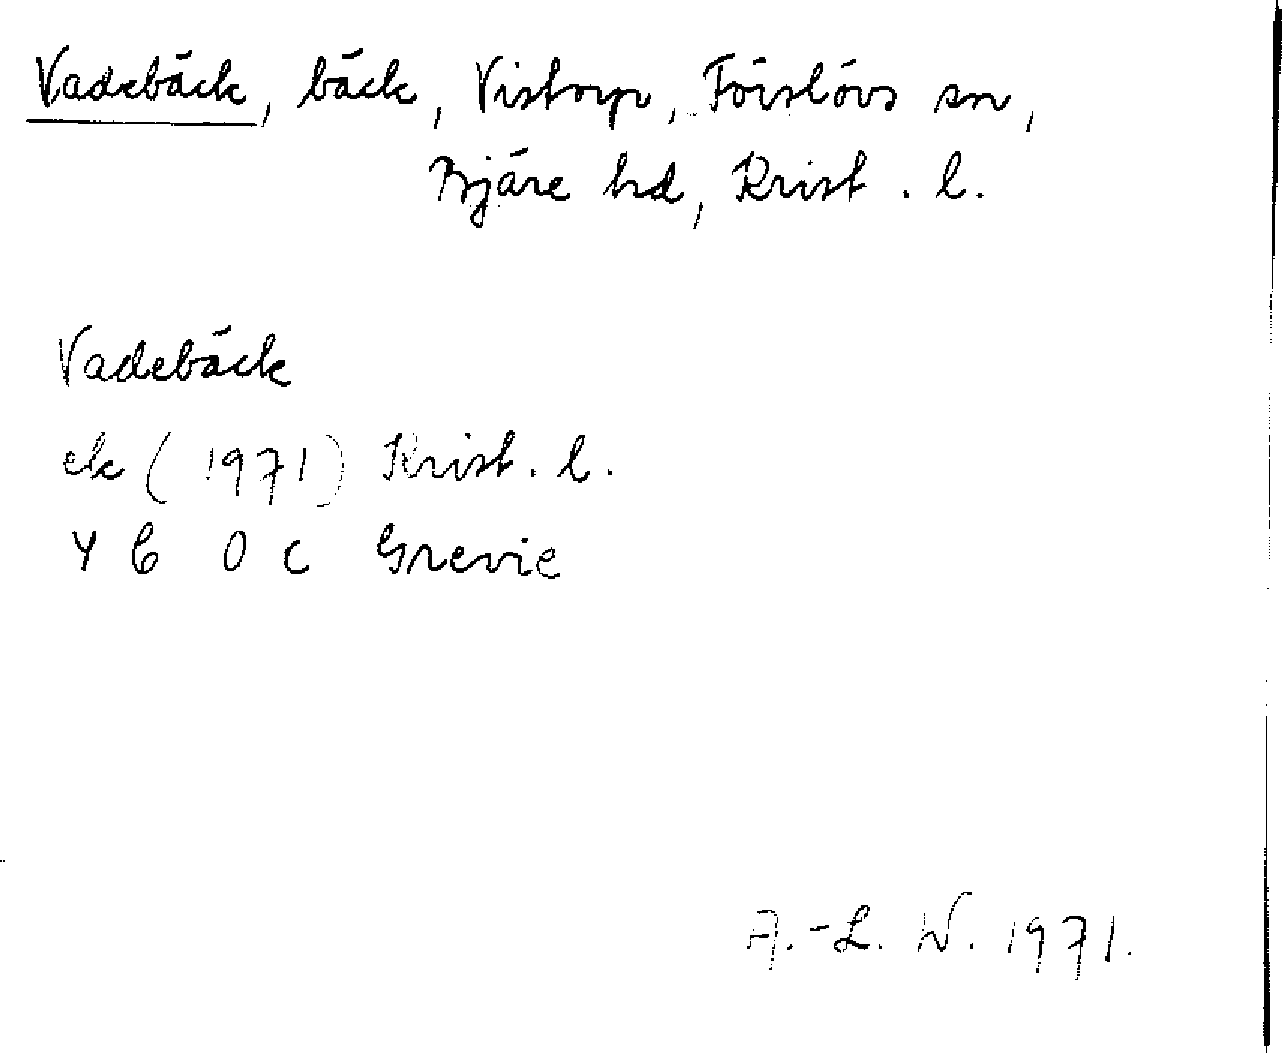 Vadebäck, bäck, Vistorp, Förslövs sn,
Bjäre hd, Krist. l.
Vadebäck
ek (1971) Krist. l.
4 C 0 c Grevie
A.-L. W. 1971.